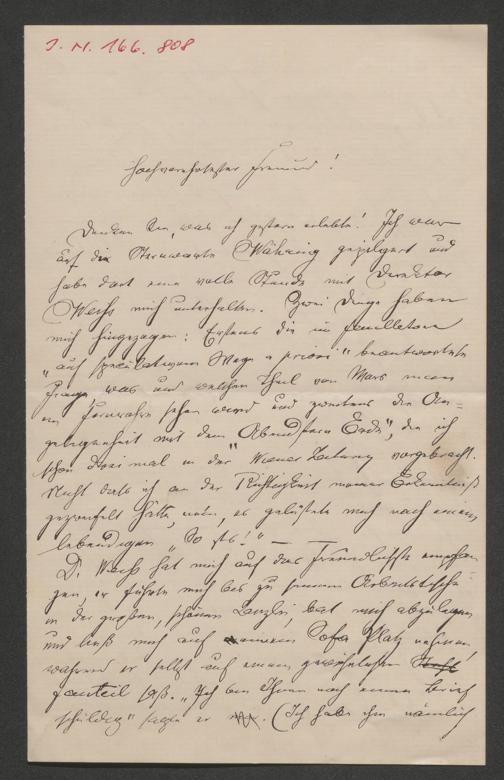 J. N. 166.808
Hochverehrtester Freund!
Denken Sie, was ich gestern erlebte! Ich war
auf die Sternwarte Währing gepilgert und
habe dort eine volle Stunde mit Direktor
Weiß mich unterhalten. Zwei Dinge haben
mich hingezogen: Erstens die im Feuilleton
„auf spekulativem Wege a priori“ beantwortete
Frage, was und welchen Theil von Mars man
im Fernrohr sehen werde und zweitens die An-
gelegenheit mit dem „Abendstern Erde“, die ich
schon dreimal in der Wiener Zeitung vorgebracht.
Nicht daß ich an der Richtigkeit meiner Erkenntniß
gezweifelt hätte, nein, es gelüstete mich nach einem
lebendigen „So ists!“ — —
D. Weiß hat mich auf das freundlichste empfan
gen, er führte mich bis zu seinem Arbeitstische
in der großen, schönen Kanzlei, bat mich abzulegen
und ließ mich auf einem Sofa Platz nehmen,
während er selbst auf einem gewöhnlichen
Fauteil saß. „Ich bin Ihnen noch einen Brief
schuldig“ sagte er. (Ich habe ihm nämlich